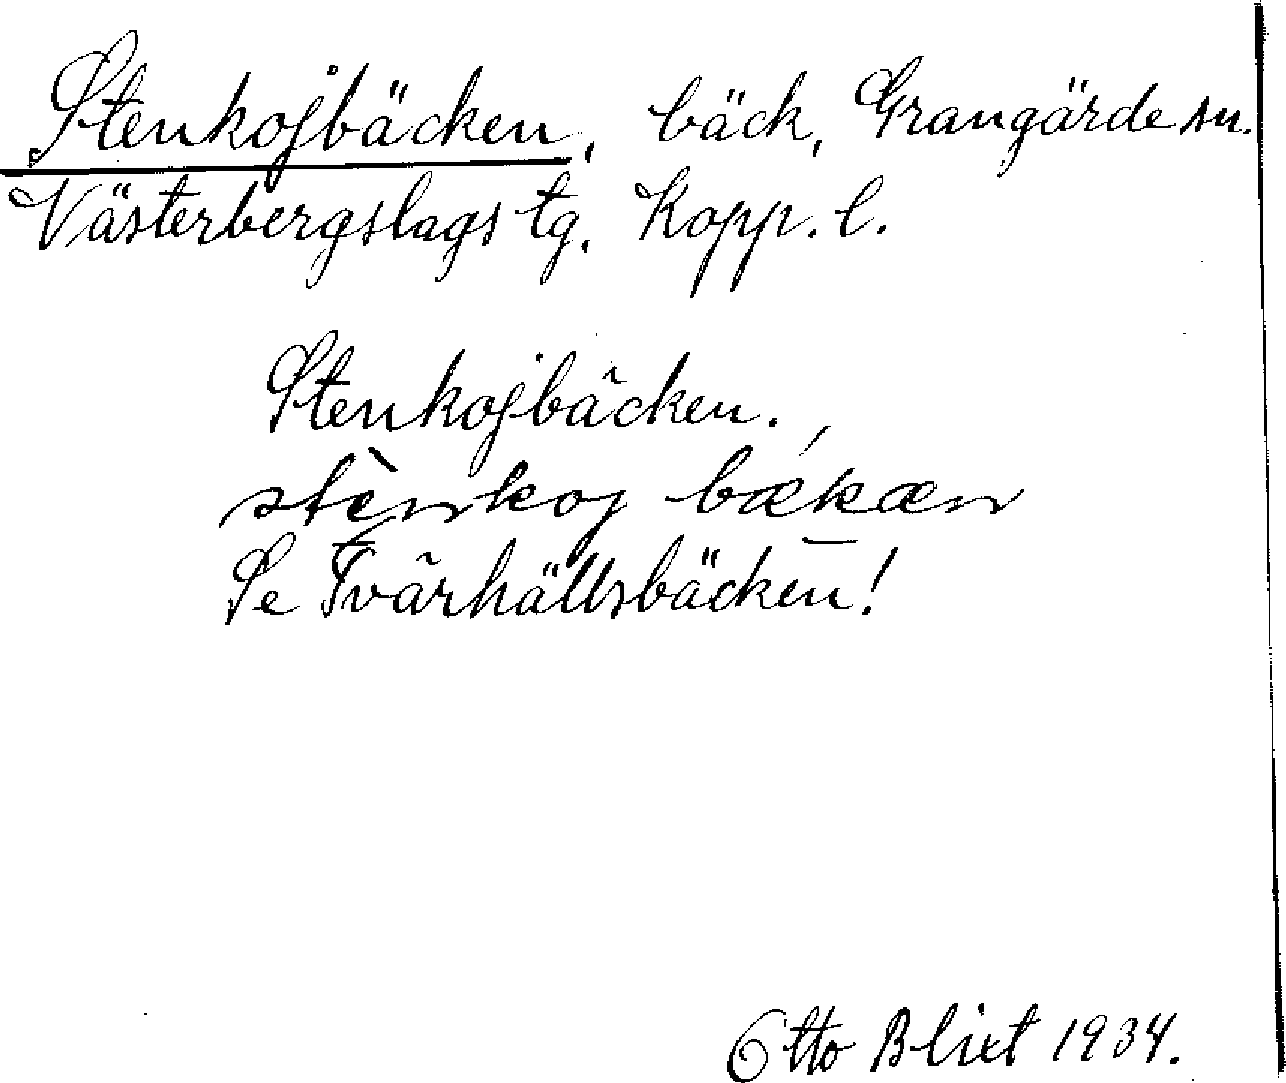 Stenkojbäcken, bäck, Grangärde sn.
Västerbergslags tg. Kopp. l.
Stenkojbäcken.
stènkoj bækæn
Se Tvärhälltsbäcken!
Otto Blixt 1934.